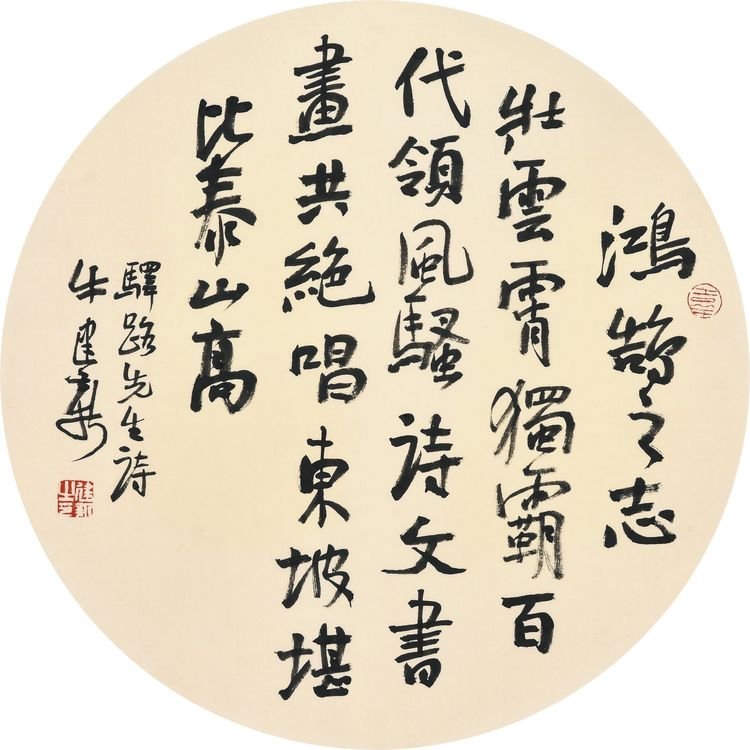 鴻鵠之志
壯雲霄獨霸百
代領風騷詩文書
畫共絶唱東坡堪
比泰山高
驛路先生詩
建